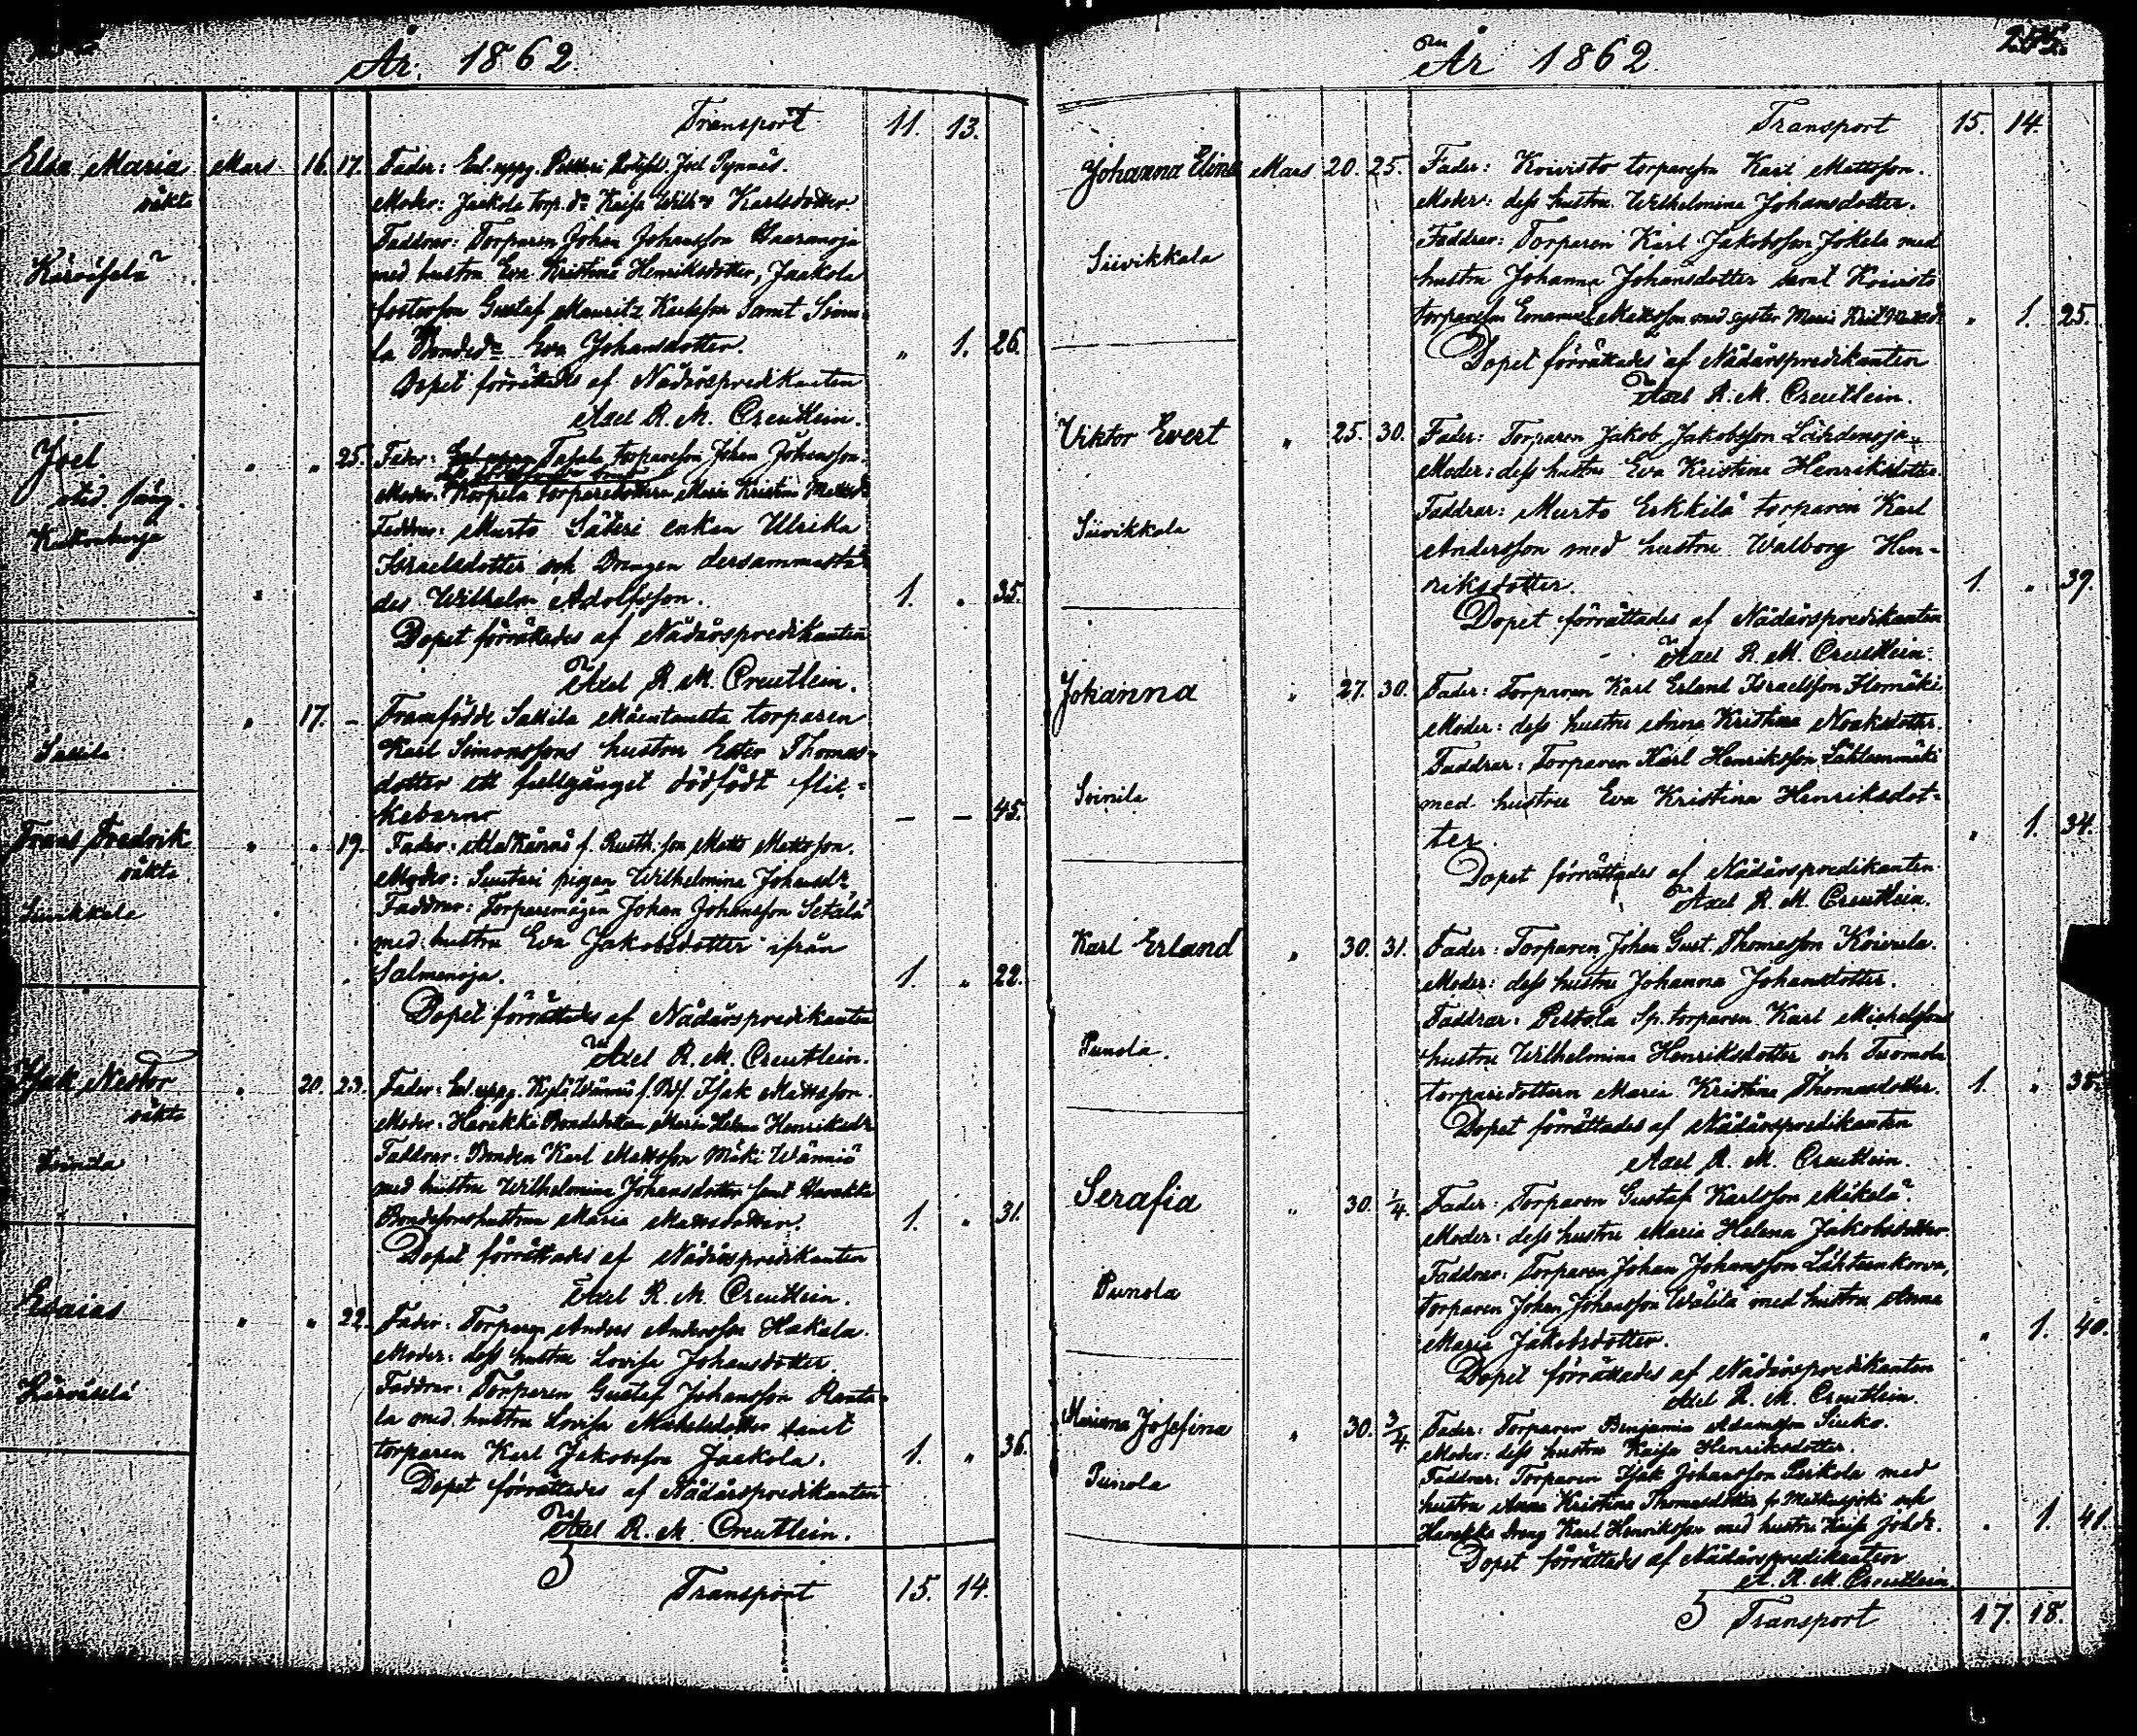 År 1862.
Transport 11. 13.
Elsa Maria Mars 16. 17. Fader: Enl. uppg. Joel
oäkta Moder: Jaakola torp. dr Kaisa Wilh:a Karlsdotter.
Faddrar: Torparen Johan Johansson Haaranoja
Käräjälä med hustru Eva Kristina Henriksdotter, Jaakola
fosterson Gustaf Mauritz Karlsson samt Simo-
la Bonded:r Eva Johansdotter. " 1. 26.
Dopet förrättades af Nådårspredikanten
Axel R. M. Creutlein.
Joel " " 25. Fader: Tapala torpareson Johan Johansson.
Moder: Korpela torparedottern Maria Kristina Mattsdr
Faddrar: Murto Säteri enkan Ulrika
Israelsdotter och Drengen dersammasta-
des Wilhelm Adolfsson. 1. " 35.
Dopet förrättades af Nådårspredikanten
Axel R. M. Creutlein.
" 17. - Framfödde Sallila torparen
Sallila Karl Simonssons hustru Ester Thomas-
dotter ett fullgånget dödfödt flic-
kebarn - - 45.
Frans Fredrik " " 19. Fader: f. Rusth. son Matts Mattsson.
oäkta Moder: pigan Wilhelmina Johansdr
Faddrar: Torparemågen Johan Johansson Setälä
Siivikkala med hustru Eva Jakobsdotter ifrån
Salmenoja. 1. " 22.
Dopet förrättades af Nådårspredikanten
Axel R. M. Creutlein.
Isak Nestor " 20. 23. Fader: Enl. uppg. Isak Mattsson.
oäkta Moder: Harakka Bondedottern Maria Helena Henriksdr
Soinila Faddrar: Bonden Karl Mattsson Mäki Wänniö
med hustru Wilhelmina Johansdotter samt Harakka
Bondesonshustrun Maria Mattsdotter. 1. " 31.
Dopet förrättades af Nådårspredikanten
Axel R. M. Creutlein.
Esaias " " 22. Fader: Torparen Anders Andersson Hakala.
Moder: dess hustru Lovisa Johansdotter.
Käräjälä Faddrar: Torparen Gustaf Johansson Ranta-
la med hustru Lovisa Michelsdotter samt
torparen Karl Jakobsson Jaakola. 1. " 36.
Dopet förrättades af Nådårspredikanten
Axel R. M. Creutlein.
5 Transport 15. 14.
År 1862
Transport 15. 14.
Johanna Elina Mars 20. 25. Fader: Koivisto torpareson Karl Mattsson.
Moder: dess hustru Wilhelmina Johansdotter.
Siivikkala Faddrar: Torparen Karl Jakobsson Jokela med
hustru Johanna Johansdotter samt Koivisto
torpareson Emanuel Mattsson med syster Maria " 1. 25.
Dopet förrättades af Nådårspredikanten
Axel R. M. Creutlein.
Viktor Evert " 25. 30. Fader: Torparen Jakob Jakobsson Lähdenoja.
Moder: dess hustru Eva Kristina Henriksdotter.
Siivikkala Faddrar: Murto Erkkilä torparen Karl
Andersson med hustru Walborg Hen-
riksdotter. 1. " 39.
Dopet förrättades af Nådårspredikanten
Axel R. M. Creutlein.
Johanna " 27. 30. Fader: Torparen Karl Erland Israelsson
Moder: dess hustru Anna Kristina Noaksdotter.
Soinila Faddrar: Torparen Karl Henriksson Lähteenmäki
med hustru Eva Kristina Henriksdot-
ter. " 1. 34.
Dopet förrättades af Nådårspredikanten
Axel R. M. Creutlein.
Karl Erland " 30. 31. Fader: Torparen Johan Gust. Thomasson Koivula.
Moder: dess hustru Johanna Johansdotter.
Punola. Faddrar: Peltola Sp. torparen Karl Michelssons
hustru Wilhelmina Henriksdotter och Tuomola
torparedottern Maria Kristina Thomasdotter. 1. " 38.
Dopet förrättades af Nådårspredikanten
Axel R. M. Creutlein.
Serafia " 30. 1/4. Fader: Torparen Gustaf Karlsson Mäkelä.
Moder: dess hustru Maria Helena Jakobsdotter.
Punola Faddrar: Torparen Johan Johansson Lähteenkorva,
torparen Johan Johansson Wälilä med hustru Anna
Maria Jakobsdotter. " 1. 40.
Dopet förrättades af Nådårspredikanten
Axel R. M. Creutlein.
Mariana Josefina " 30. 3/4. Fader: Torparen Benjamin Adamsson Siuko.
Moder: dess hustru Kaisa Henriksdotter.
Punola Faddrar: Torparen Isak Johansson Perkola med
hustru Anna Kristina Thomasdotter fr och
Harakka dreng Karl Henriksson med hustru Kaisa Johdr. " 1. 41.
Dopet förrättades af Nådårspredikanten
A. R. M. Creutlein
5 Transport 17. 18.